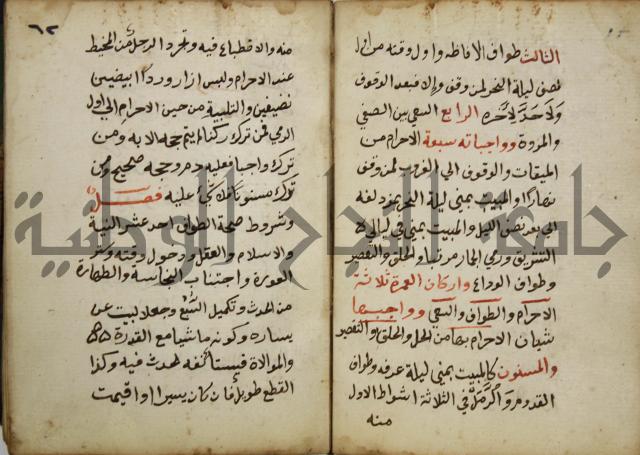 الثالث طواف الافاظه واول وقته من اول
نصف ليلة النحر لمن وقف والا فبعد الوقوف
ولا حد لاخره الرابع السعي بين الصفي
والمروة وواجباته سبعة الاحرام من
الميقات والوقوف الي الغروب لمن وقف
نهارا والمبيت ليلة النحر بمزدلفه
الي بعد نصف الليل والمبيت بمني في ليالي
التشريق ورمي الجمار مرتبا والحلق والتقصير
وطواف الوداع واركان العمرة ثلاثة
الاحرام والطواف والسعي وواجبها
شيان الاحرام بها من الحل والحلق او التقصير
والمسنون كالمبيت بمني ليلة عرفه وطواف
القدوم والرمل في الثلاثة اشواط الاول
منه
٦٢
منه والاضطباع فيه وتجرد الرجل من المخيط
عند الاحرام ولبس ازار وردا ابيضين
نضيفين والتلبية من حين الاحرام الي اول
الرمي فمن ترك ركنا لم يتم حجه الا به ومن
ترك واجبا فعليه دم وحجه صحيح ومن
ترك مسنونا فلا شي عليه فصل
وشروط صحة الطواف احد عشر النية
والاسلام والعقل ودخول وقته وستر
العورة واجتناب النجاسة والطهارة
من الحدث وتكميل السبع وجعل البيت عن
يساره وكونه ماشيا مع القدرة
والموالاة فيستأنفه لحدث فيه وكذا
القطع طويل فان كان يسيرا او اقيمت
جامعة النجاح الوطنية